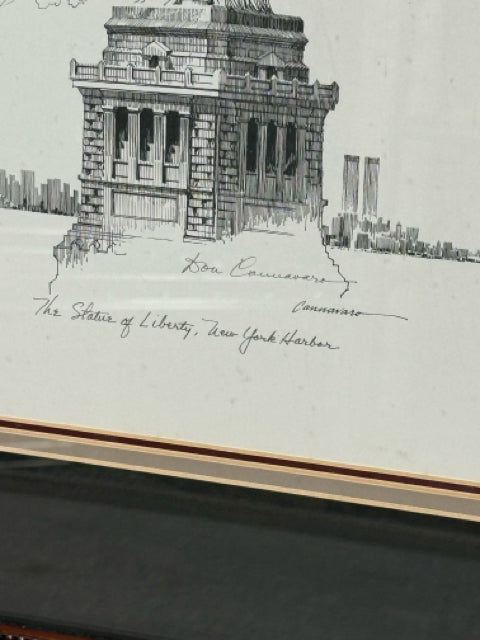 Don Cannavaro
Cannavaro
The Statue of Liberty, New York Harbor